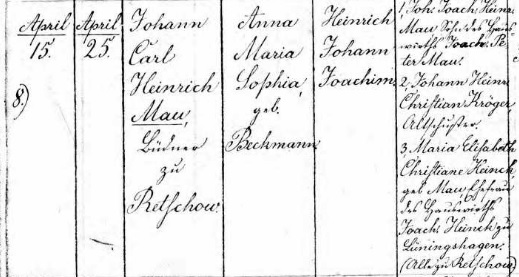 April
15.
8.)
April
25.
Johann
Carl
Heinrich
Mau,
Büdner
zu
Retschow.
Anna
Maria
Sophia,
geb.
Beckmann.
Heinrich
Johann
Joachim.
1, Joh: Joach: Heinr:
Mau Sohn des Haus-
wirths Joach: Pe-
ter Mau.
2, Johann Heinr:
Christian Kröger
Altschuster.
3, Maria Elisabeth
Christiane Heinck
geb. Mau Ehefrau
des Hauswirths
Joach: Heinck zu
Lüningshagen.
(Alle zu Retschow)